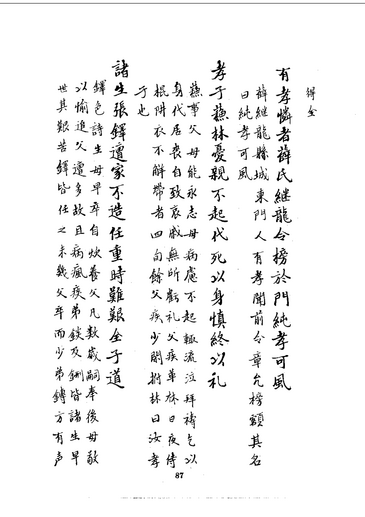 得全
有孝憐者薛氏継龍令榜於門純孝可風
薛継龍縣城東門人有孝聞前令章允榜額其名
曰純孝可風
孝子蕪林憂親不起代死以身慎終以礼
蕪事父母能承志母病慮不起輒流泣拜禱乞以
身代居喪自致哀戚無所虧礼父疾革林日夜侍
棍阱衣不解帶者四旬餘父疾少間拊林曰汝孝
子也
諸生張鐸遭家不造任重時難艱全子道
鐸色詩生母早卒自炊養父凡数歳嗣奉後母敬
以愉進父遭多故且病瘋疾弟錟及鍘皆諸生早
世其艱苦鐸皆任之未幾父卒而少弟鏄方有声
87